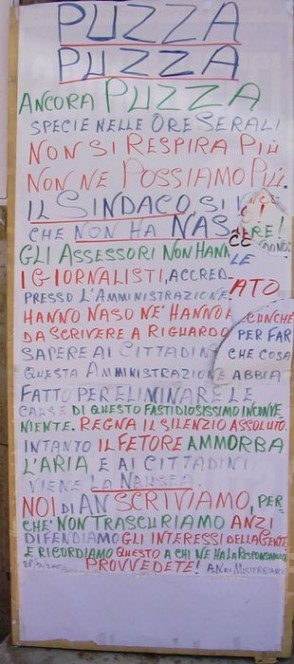 PUZZA
PUZZA
ANCORA PUZZA
SPECIE NELLE ORE SERALI
NON SI RESPIRA PIÙ
NON NE POSSIAMO PIÙ.
IL SINDACO, SI
CHE NON HA NAS ERE!
GLI ASSESSORI NON HANN LE
I GIORNALISTI, ACCRED. ATO
PRESSO L'AMMINISTRAZIONE
HANNO NASO NE' HANNO
DA SCRIVERE A RIGUARDO PER FAR
SAPERE AI CITTADIN CHE COSA
QUESTA AMMINISTRAZIONE ABBIA
FATTO PER ELIMINARE LE
CAUSE DI QUESTO FASTIDIOSISSIMO INCONVE
NIENTE. REGNA IL SILENZIO ASSOLUTO.
INTANTO IL FETORE AMMORBA
L'ARIA E AI CITTADINI
VIENE LA NAUSEA.
NOI DI AN SCRIVIAMO, PER
CHE' NON TRASCURIAMO ANZI
DIFENDIAMO GLI INTERESSI DELLA GENTE
E RICORDIAMO QUESTO A CHI NE HA LA RESPONSABILITÀ
PROVVEDETE!